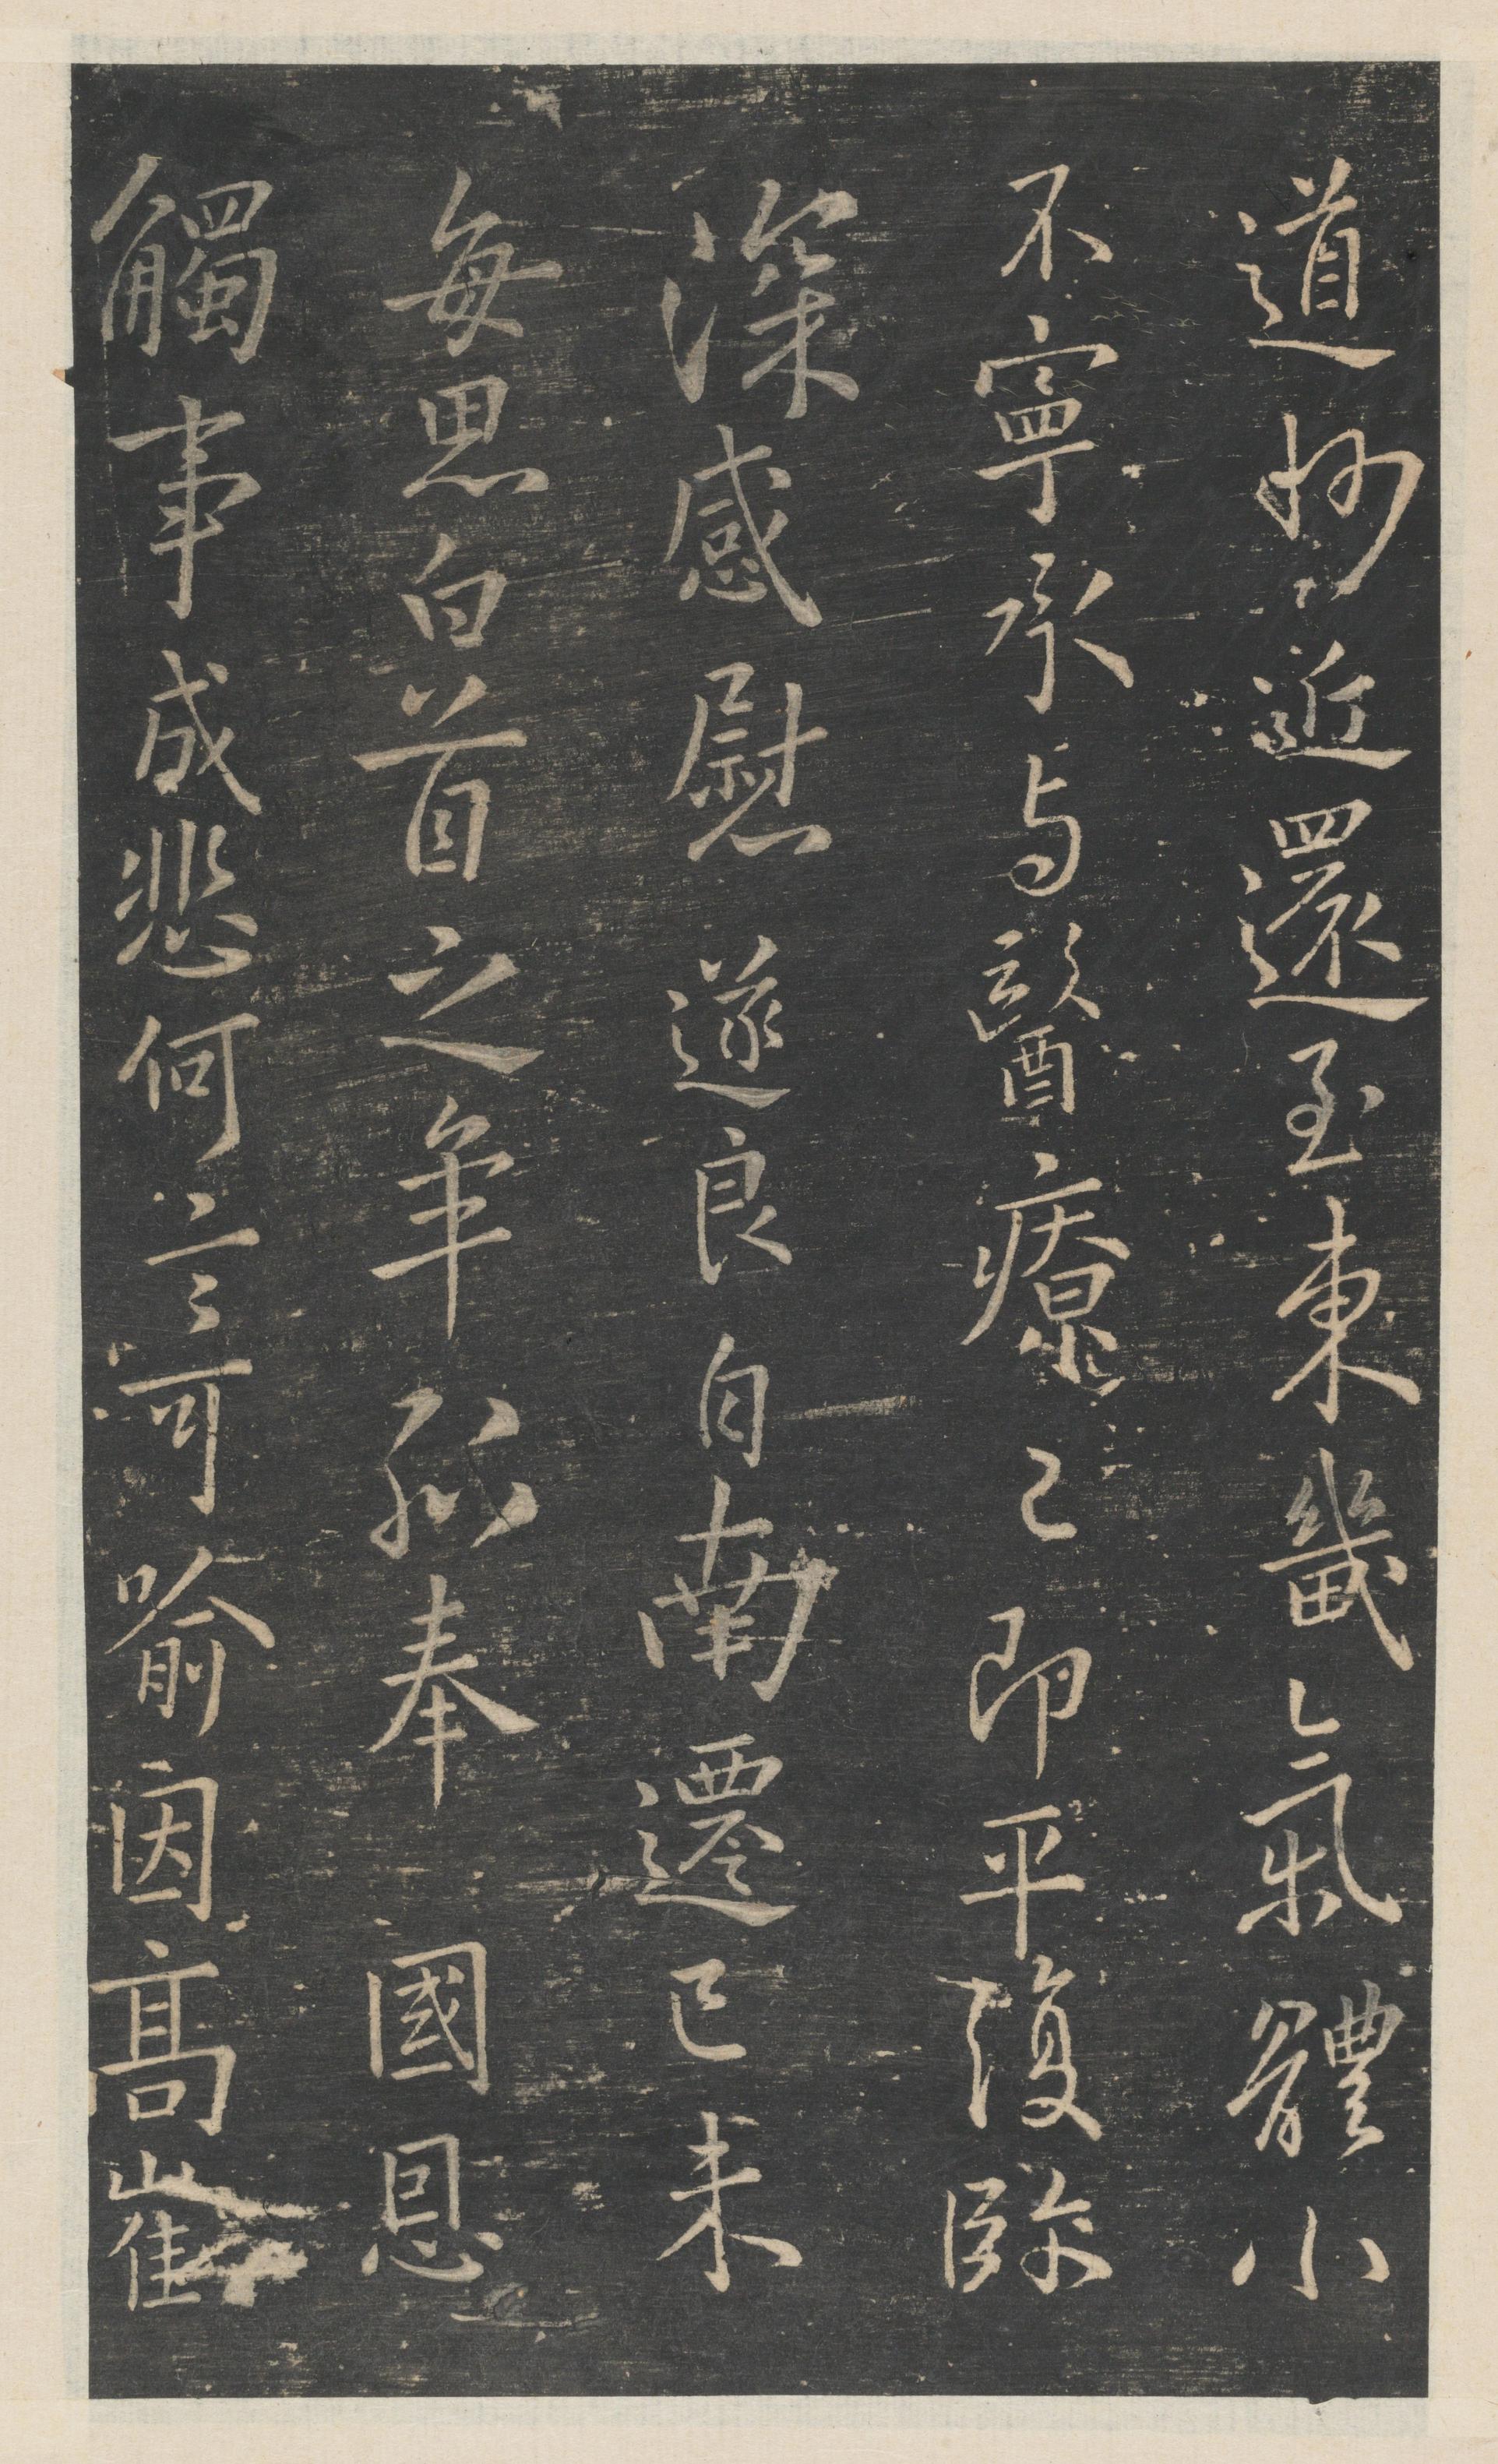 道妙近還至東畿氣體小
不寧承与醫療已即平復臨
深感慰遂良自南遷已未
每思白首之年孤奉國恩
觸事成悲何言可喻因高崔